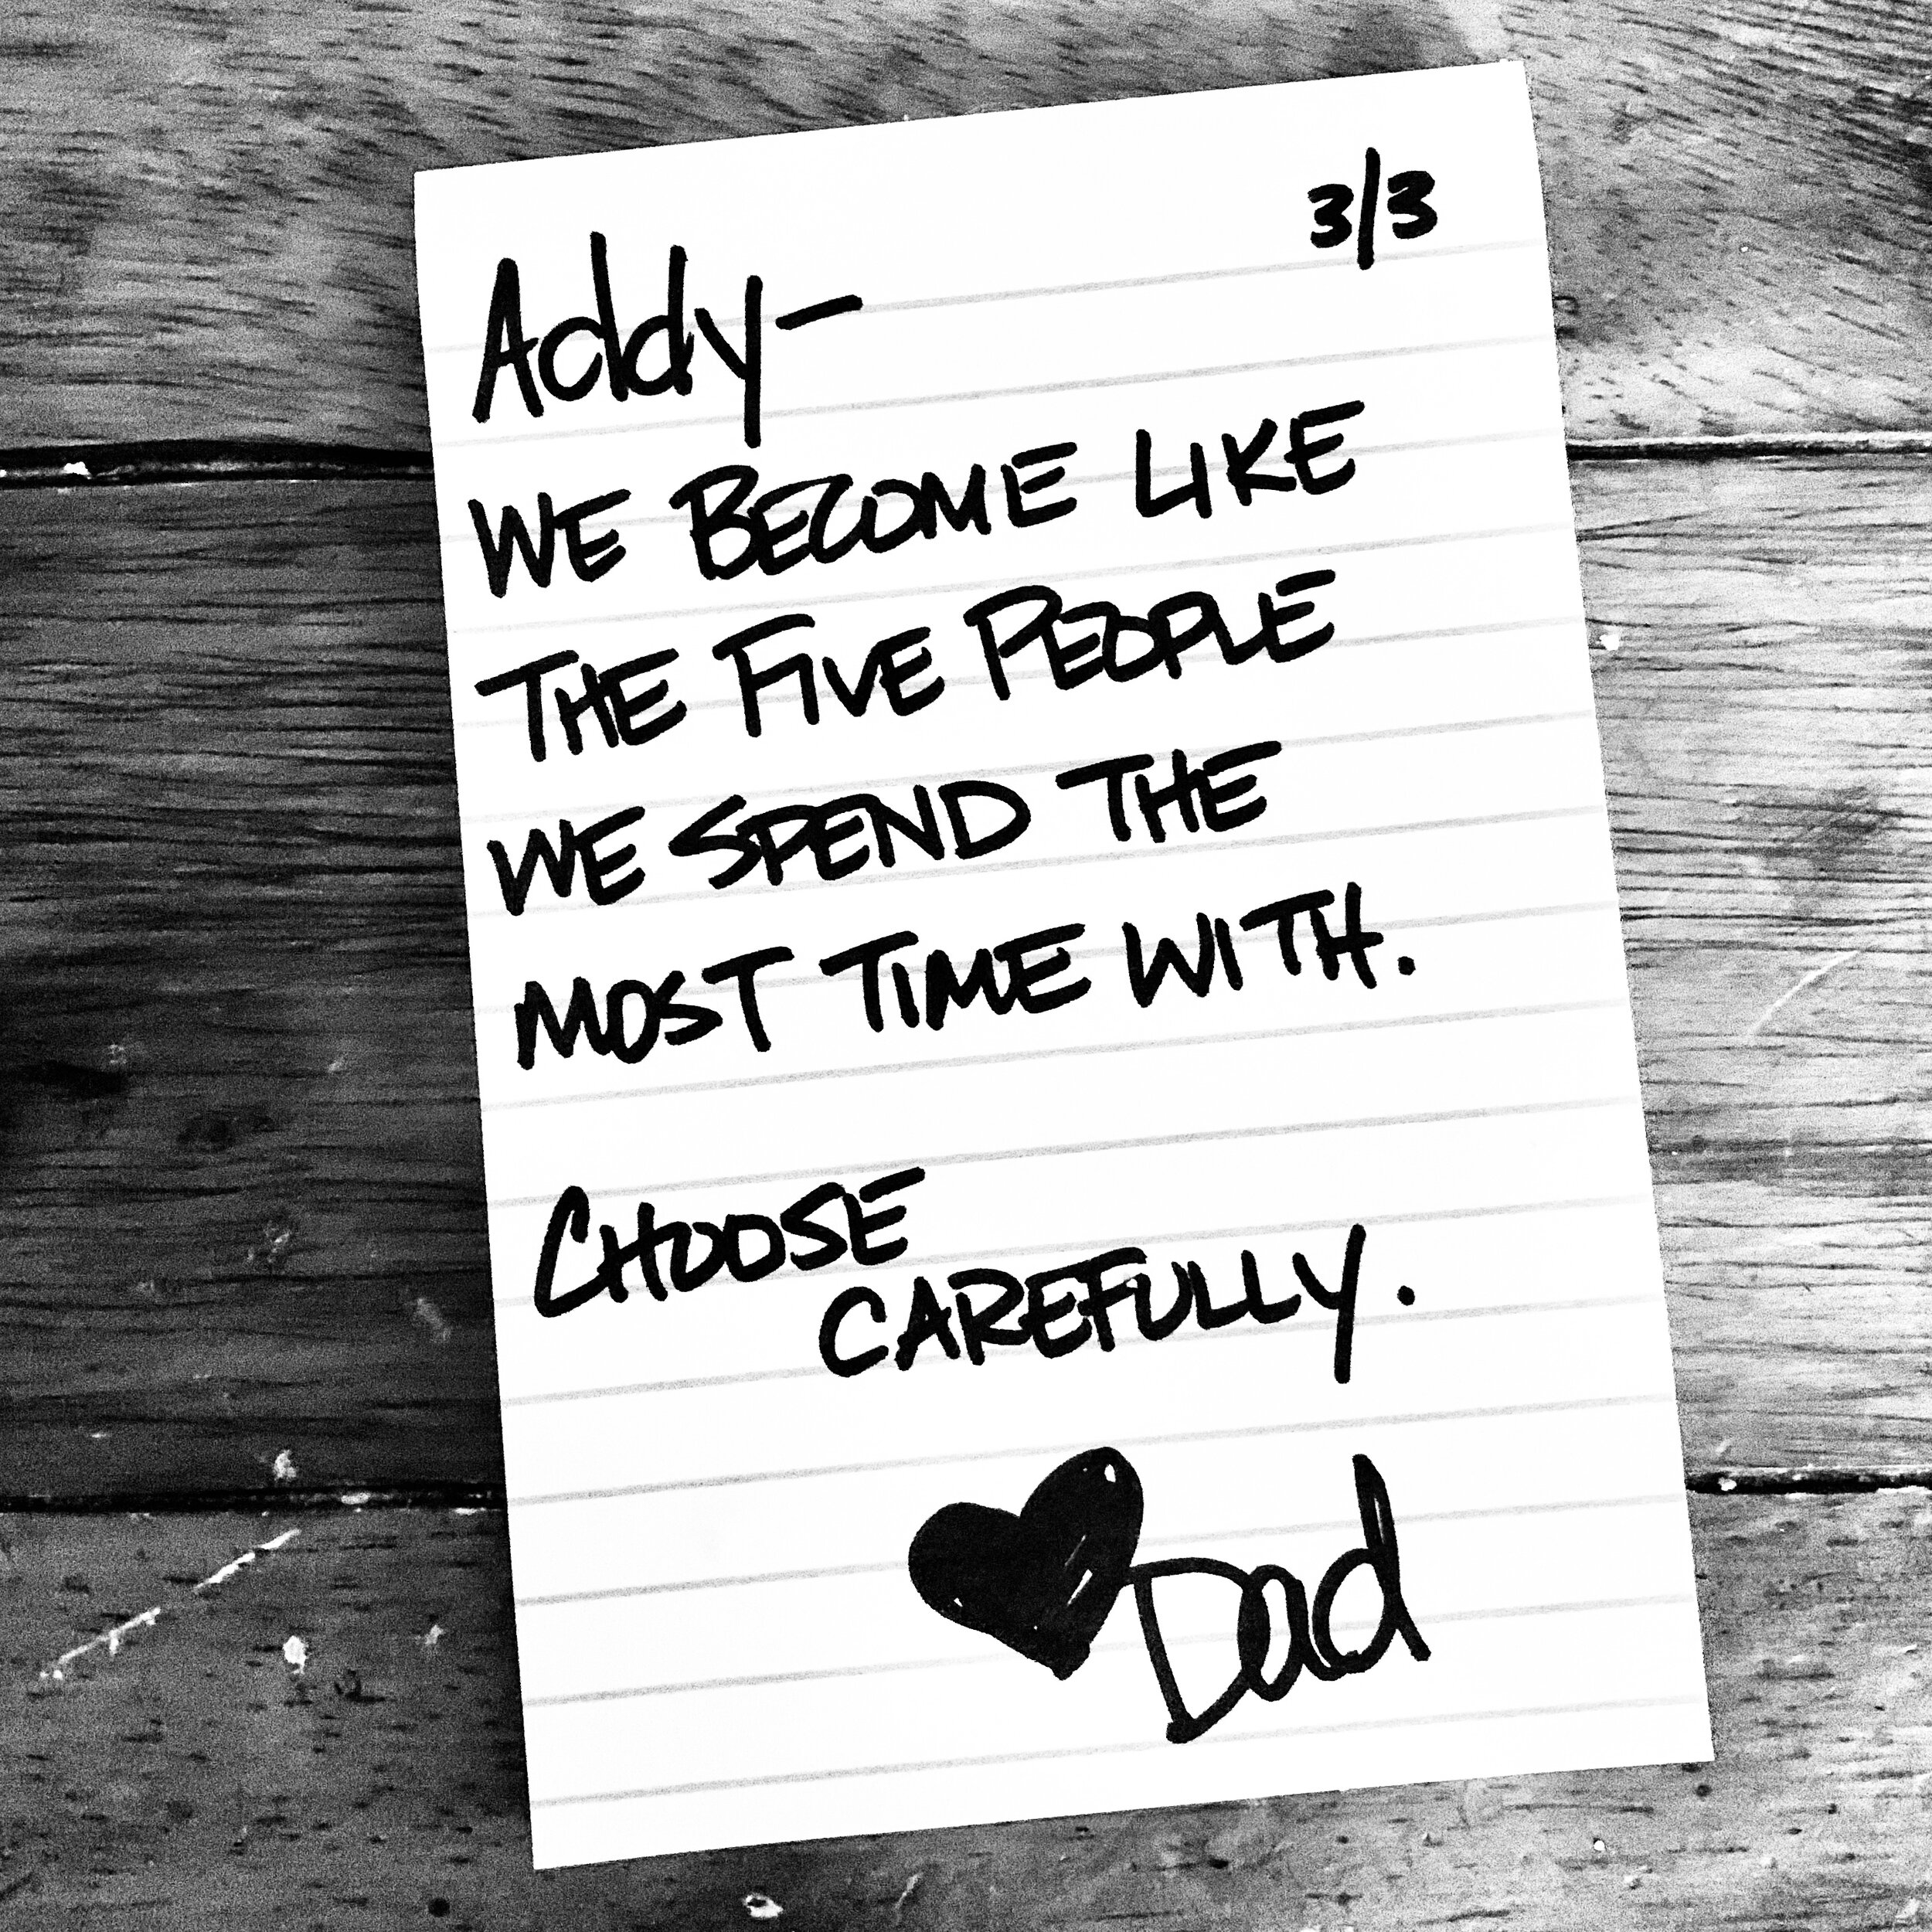 3/3
Addy-
WE BECOME LIKE
THE FIVE PEOPLE
WE SPEND THE
MOST TIME WITH.
CHOOSE
CAREFULLY.
Dad